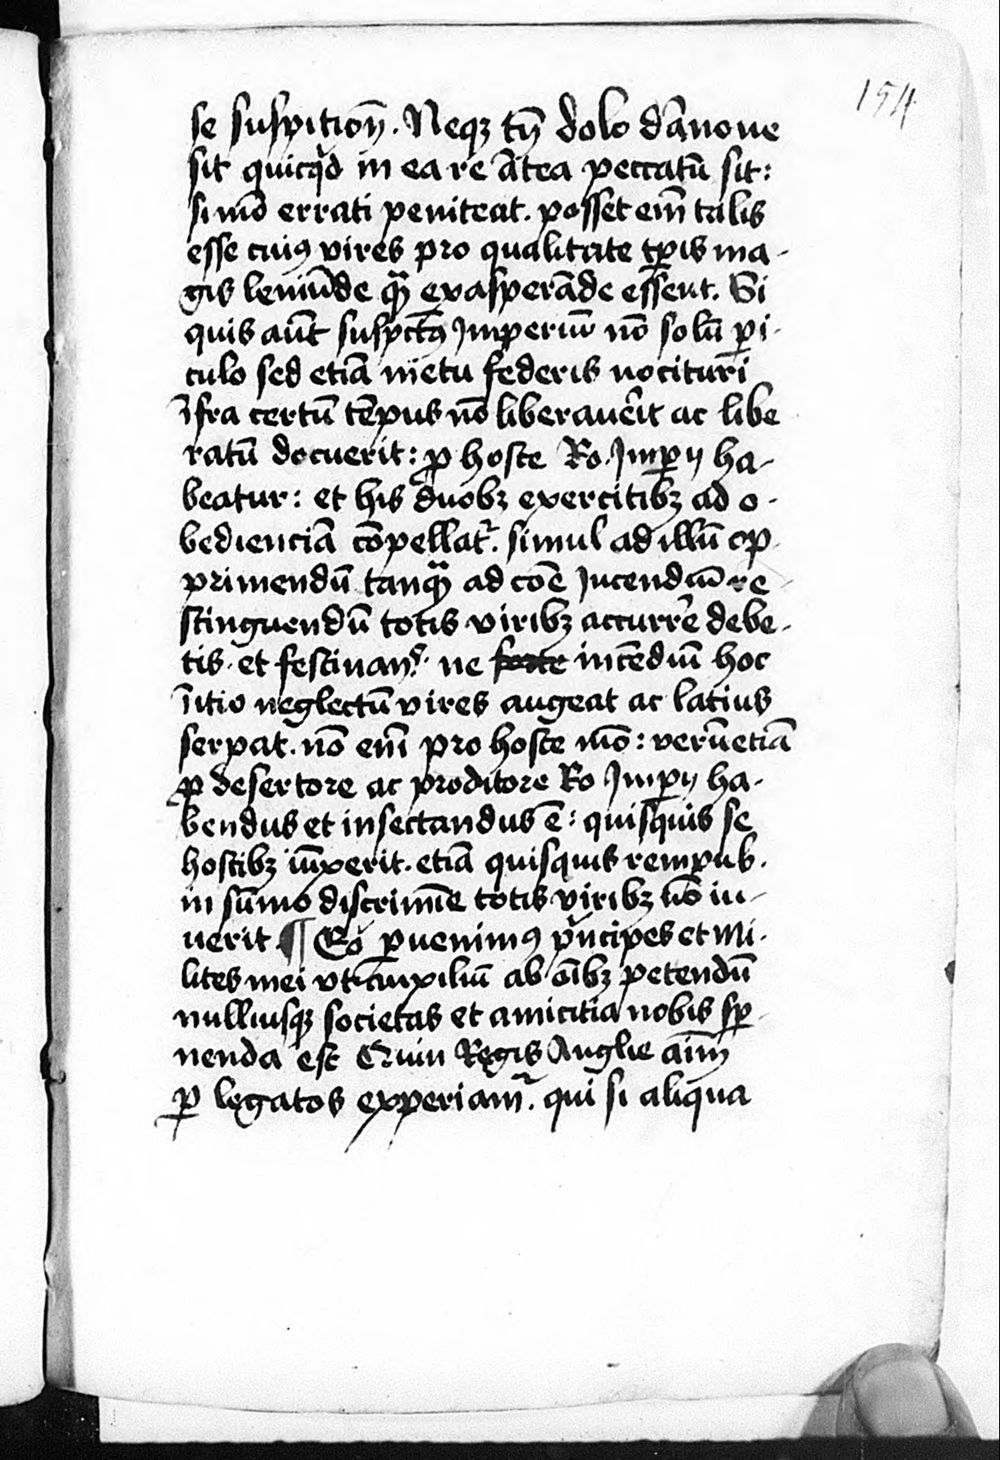 154
se suspitioꝫ. Neqꝫ tn̄ dolo dāno ue
sit quicqͥd in ea re ātea peccatū sit:
si mō errati peniteat. posset em̄ talis
esse cuiꝰ vires pro qualitate tꝑis ma-
gis leniūde qͣꝫ exasperāde essent. Si
quis aūt suspectꝰ Imperiū nō solū ꝑi-
culo sed etiā metu federis nocituri
īfra certū tēpus nō liberauērit ac libe
ratū docuerit: ꝓ hoste Ro. Imꝑij ha-
beatur: et his duobꝫ exercitibꝫ ad o-
bedienciā cōpellat᷑. simul ad illū op
primendū tanqͣꝫ ad coē Incendiū re
stinguendū totis viribꝫ accurrē debe-
tis. et festinan᷑. ne incēdiū hoc
īitio neglectū vires augeat ac latius
serpat. nō em̄ pro hoste mō: verūetiā
ꝓ desertore ac proditore Ro Imꝑij ha-
bendus et insectandus ē: quisquis se
hostibꝫ iūxerit. etiā quisquis rempub.
in sūmo discrimīe totis viribꝫ nō iu-
uerit. ¶ Eo ꝑuenimꝰ pͥncipes et Mi-
lites mei vt auxiliū ab oībꝫ petendū
nulliusqꝫ societas et amicitia nobis sꝑ-
nenda est Quin Regis Anglie aīm
ꝑ legatos experiam᷑. qui si aliqua